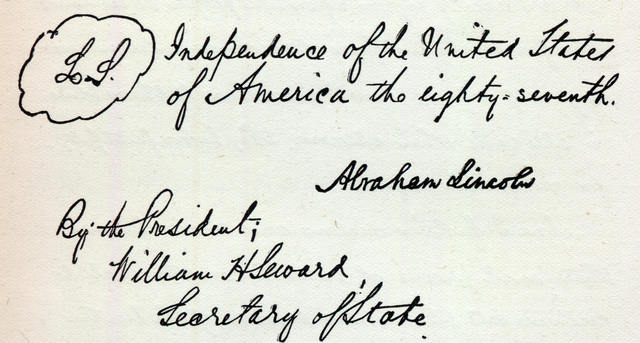 L.S.
Independence of the United States
of America the eighty-seventh.
Abraham Lincoln
By the President;
William H Seward,
Secretary of State.